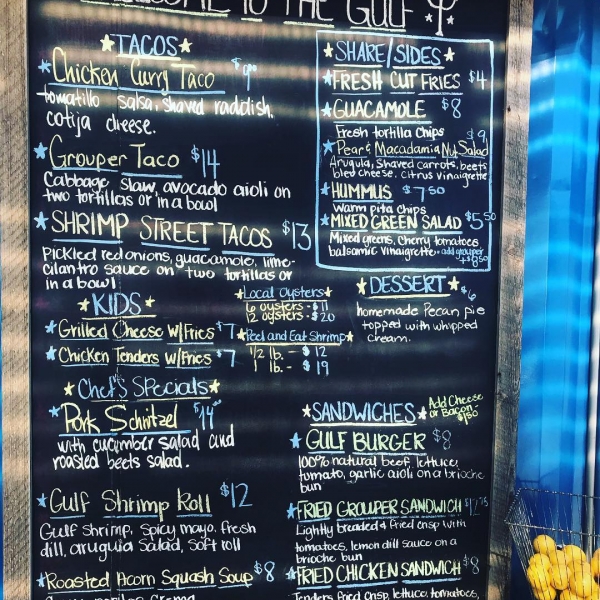 TO THE GULF
TACOS
Chicken Curry Taco
tomatillo salsa, shaved raddish,
cotija cheese.
Grouper Taco $14
Cabbage slaw, avocado aioli on
two tortillas or in a bowl
SHRIMP STREET TACOS $13
Pickled red onions, guacamole, lime-
cilantro sauce on two tortillas or
in a bowl
KIDS
Grilled Cheese w/Fries $7
Chicken Tenders w/Fries $7
Local Oysters
6 oysters - $11
12 oysters - $20
Peel and Eat Shrimp
1/2 lb. - $12
1 lb. - $19
Chef's Specials
Pork Schnitzel
with cucumber salad and
roasted beets salad.
Gulf Shrimp Roll $12
Gulf Shrimp, spicy mayo, fresh
dill, aruguia salad, soft roll
Roasted Acorn Squash Soup $8
SHARE/SIDES
FRESH CUT FRIES $4
GUACAMOLE $8
Fresh tortilla chips
$9
Pear & Macadamia Nut Salad
Arugula, shaved carrots, beets
bleu cheese, citrus vinaigrette
HUMMUS $7 50
warm pita chips
MIXED GREEN SALAD $5 50
Mixed greens, cherry tomatoes
balsamic vinaigrette · add grouper
+$8 50
DESSERT
$6
homemade Pecan pie
topped with whipped
cream.
SANDWICHES
Add Cheese
or Bacon -
$1 50
GULF BURGER $8
100% natural beef, lettuce,
tomato, garlic aioli on a brioche
bun
FRIED GROUPER SANDWICH $12 75
Lightly breaded & fried crisp with
tomatoes, lemon dill sauce on a
brioche bun
FRIED CHICKEN SANDWICH $8
Tenders fried crisp, lettuce, tomatoes,